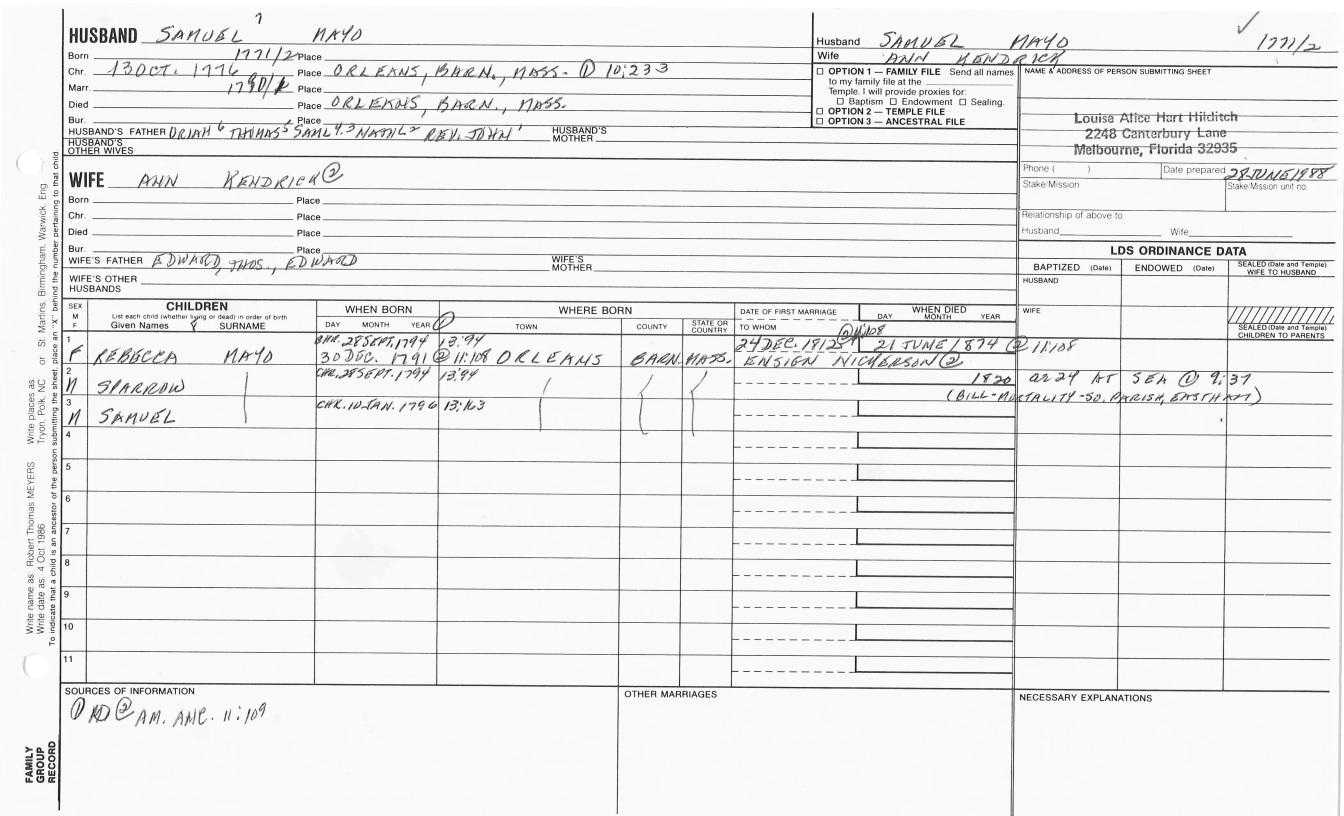 HUSBAND SAMUEL 7 MAYO
Born 1771/2 Place
Chr. 13 OCT. 1776 Place ORLEANS, BARN., MASS. ① 10:233
Marr. Place
Died Place ORLEANS, BARN., MASS.
Bur. Place
HUSBAND'S FATHER URIAH 6 THOMAS 5 SAML 4,3 NATHL 2 REV. JOHN 1 HUSBAND'S MOTHER
HUSBAND'S OTHER WIVES
Husband SAMUEL MAYO 1771/2
Wife ANN KENDRICK
☐ OPTION 1 — FAMILY FILE Send all names
to my family file at the
Temple. I will provide proxies for:
☐ Baptism ☐ Endowment ☐ Sealing.
☐ OPTION 2 — TEMPLE FILE
☐ OPTION 3 — ANCESTRAL FILE
NAME & ADDRESS OF PERSON SUBMITTING SHEET
Louise Alice Hart Hilditch
2248 Canterbury Lane
Melbourne, Florida 32935
Phone ( ) Date prepared 28 JUNE 1988
Stake Mission Stake Mission unit no.
Relationship of above to
Husband Wife
WIFE ANN KENDRICK ②
Born Place
Chr. Place
Died Place
Bur. Place
WIFE'S FATHER EDWARD, THOS., EDWARD WIFE'S MOTHER
WIFE'S OTHER HUSBANDS
LDS ORDINANCE DATA
BAPTIZED (Date) ENDOWED (Date) SEALED (Date and Temple) WIFE TO HUSBAND
HUSBAND
WIFE
SEALED (Date and Temple) CHILDREN TO PARENTS
SEX M F
CHILDREN
List each child (whether living or dead) in order of birth
Given Names SURNAME
WHEN BORN
DAY MONTH YEAR ①
WHERE BORN
TOWN COUNTY STATE OR COUNTRY
DATE OF FIRST MARRIAGE
TO WHOM
WHEN DIED
DAY MONTH YEAR
1 CHR. 28 SEPT. 1794 13:94 ② 11:108
F REBECCA MAYO 30 DEC. 1791 ② 11:108 ORLEANS BARN. MASS. 24 DEC. 1812 21 JUNE 1874 ② 11:108
ENSIGN NICKERSON ②
2 CHR. 28 SEPT. 1794 13:94 1820 ae 24 AT SEA ① 9:37
M SPARROW
(BILL-MORTALITY-SO. PARISH, EASTHAM)
3 CHR. 10 JAN. 1796 13:163
M SAMUEL
4
5
6
7
8
9
10
11
SOURCES OF INFORMATION
① MD ② AM. ANC. 11:109
OTHER MARRIAGES
NECESSARY EXPLANATIONS
FAMILY GROUP RECORD
Write name as Robert Thomas MEYERS Write places as Tryon, Polk, NC or St. Martins, Birmingham, Warwick, Eng
Write date as 4 Oct 1986
To indicate that a child is an ancestor of the person submitting the sheet, place an "X" behind the number pertaining to that child